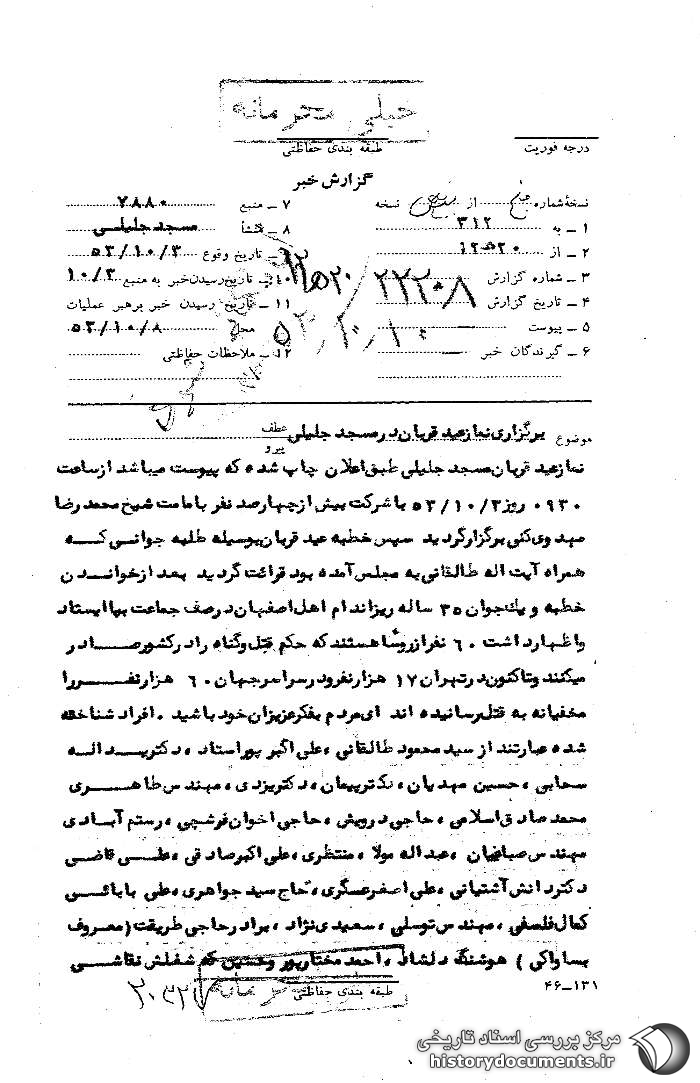 خیلی محرمانه
درجه فوریت
طبقه بندی حفاظتی
گزارش خبر
نسخهٔ شماره پنج از پنج نسخه
۱ ـ به ۳۱۲
۲ ـ از ۲۰ ھ ۱۲
۳ ـ شماره گزارش ۲۲۲۰۸ / ۲۰ ھ ۱۲
۴ ـ تاریخ گزارش ۱۰/۱۰/۵۳
۵ ـ پیوست
۶ ـ گیرندگان خبر
۷ ـ منبع ۷۸۸۰
۸ ـ منشأ مسجد جلیلی
۹ ـ تاریخ وقوع ۵۳/۱۰/۳
۱۰ ـ تاریخ رسیدن خبر به منبع ۱۰/۳
۱۱ ـ تاریخ رسیدن خبر برهبر عملیات
محل ۵۳/۱۰/۸
۱۲ ـ ملاحظات حفاظتی
موضوع برگزاری نماز عید قربان در مسجد جلیلی عطف پیرو
نماز عید قربان مسجد جلیلی طبق اعلان چاپ شده که پیوست میباشد از ساعت
۰۹۳۰ روز ۵۳/۱۰/۳ با شرکت بیش از چهارصد نفر با مامت شیخ محمد رضا
مهدوی کنی برگزار گردید سپس خطبه عید قربان بوسیله طلبه جوانی که
همراه آیت اله طالقانی به مجلس آمده بود قرائت گردید بعد از خواندن
خطبه و یک جوان ۳۵ ساله ریز اندام اهل اصفهان در صف جماعت بپا ایستاد
و اظهار داشت ۶۰ نفر از روسا هستند که حکم قتل و گناه را در کشور صادر
میکنند و تاکنون در تهران ۱۷ هزار نفر و در سراسر جهان ۶۰ هزار نفر را
مخفیانه به قتل رسانیده اند ای مردم بفکر عزیزان خود باشید . افراد شناخته
شده عبارتند از سید محمود طالقانی ، علی اکبر پور استاد ، دکتر ید اله
سحابی ، حسین مهدیان ، دکتر پیمان ، دکتر یزدی ، مهندس طاهری
محمد صادق اسلامی ، حاجی درویش ، حاجی اخوان فرشچی ، رستم آبادی
مهندس صباغیان ، عبد اله مولا ، منتظری ، علی اکبر صادقی ، علی قاضی
دکتر دانش آشتیانی ، علی اصغر عسگری ، حاج سید جواهری ، علی بابائی
کمال فلسفی ، مهندس توسلی ، سعیدی نژاد ، برادر حاجی طریقت (معروف
بساواکی ) هوشنگ دلشاد ، احمد مختارپور و حسین که شغلش نقاشی
طبقه بندی حفاظتی
۴۶-۱۳۱
مرکز بررسی اسناد تاریخی
historydocuments.ir